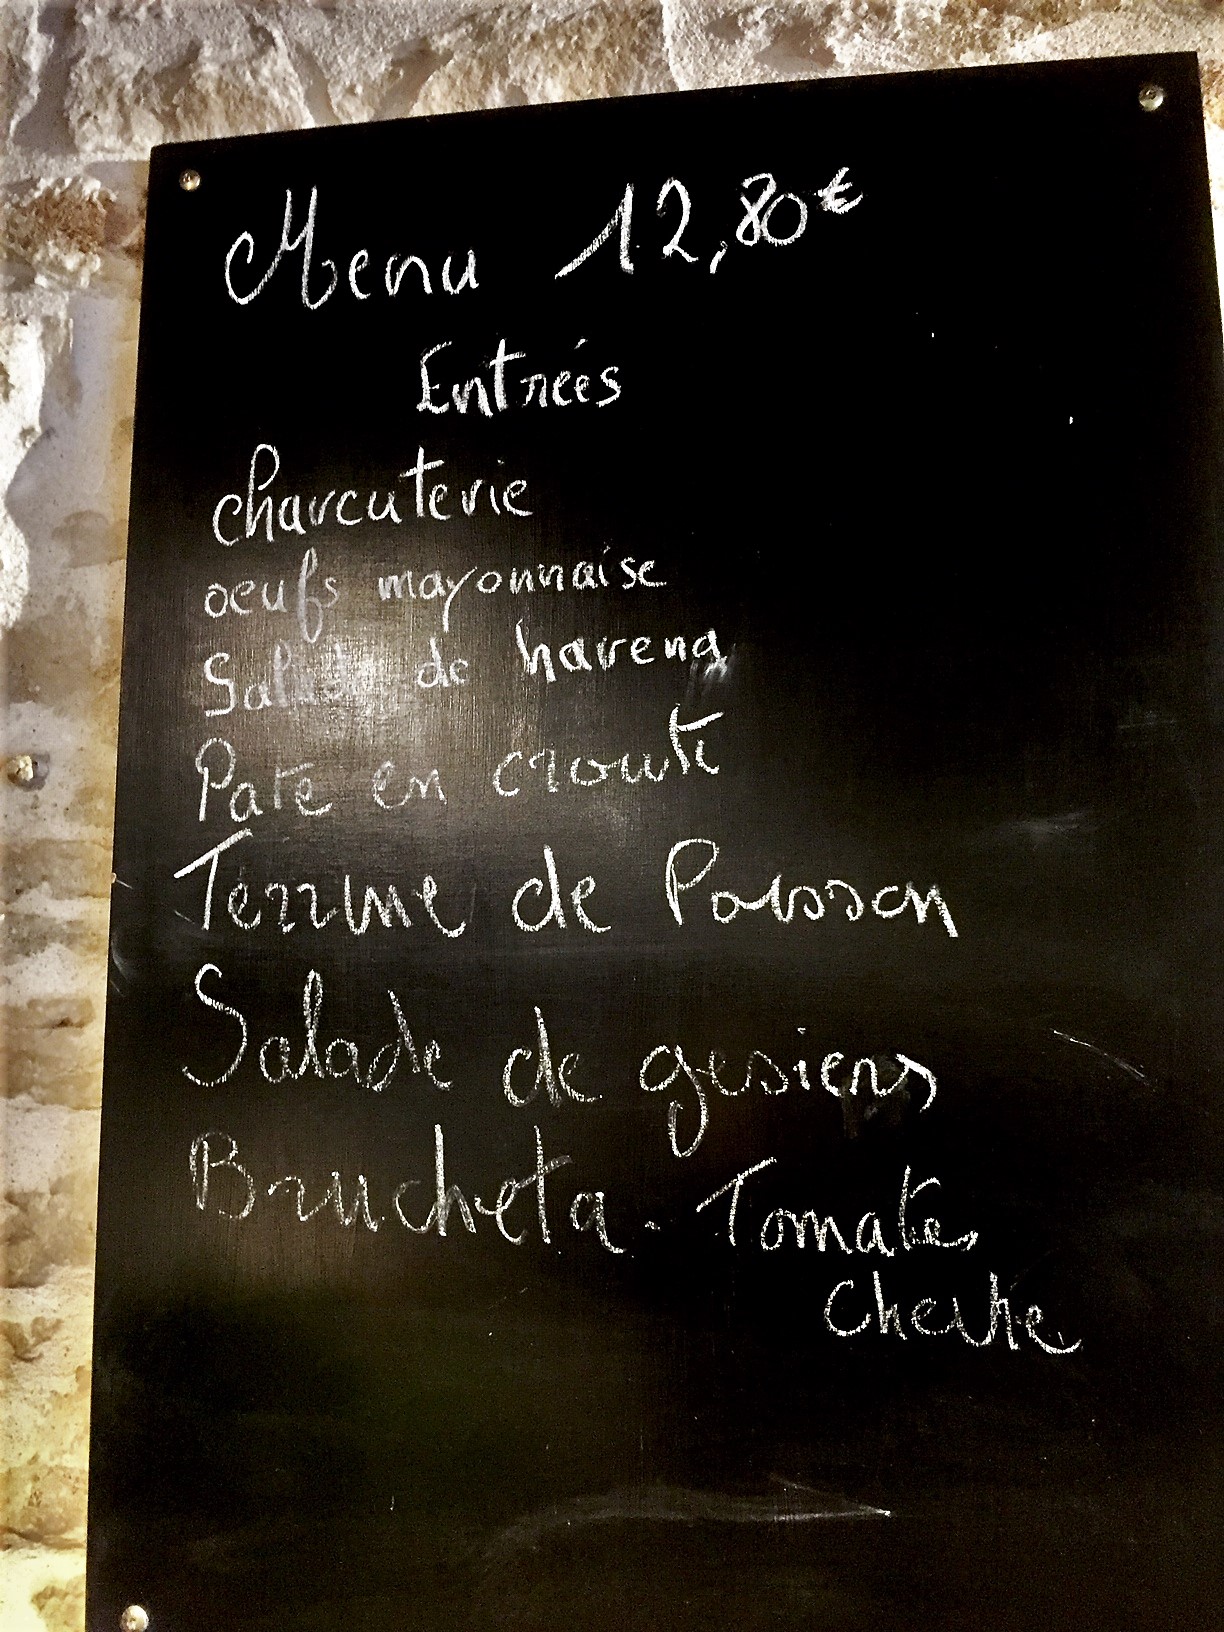 Menu 12,80€
Entrées
charcuterie
oeufs mayonnaise
Salade de hareng
Pate en croute
Terrine de Poisson
Salade de gesiers
Brucheta. Tomates